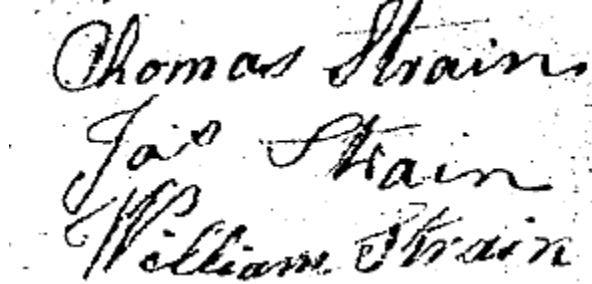 Thomas Strain
Jas Strain
William Strain